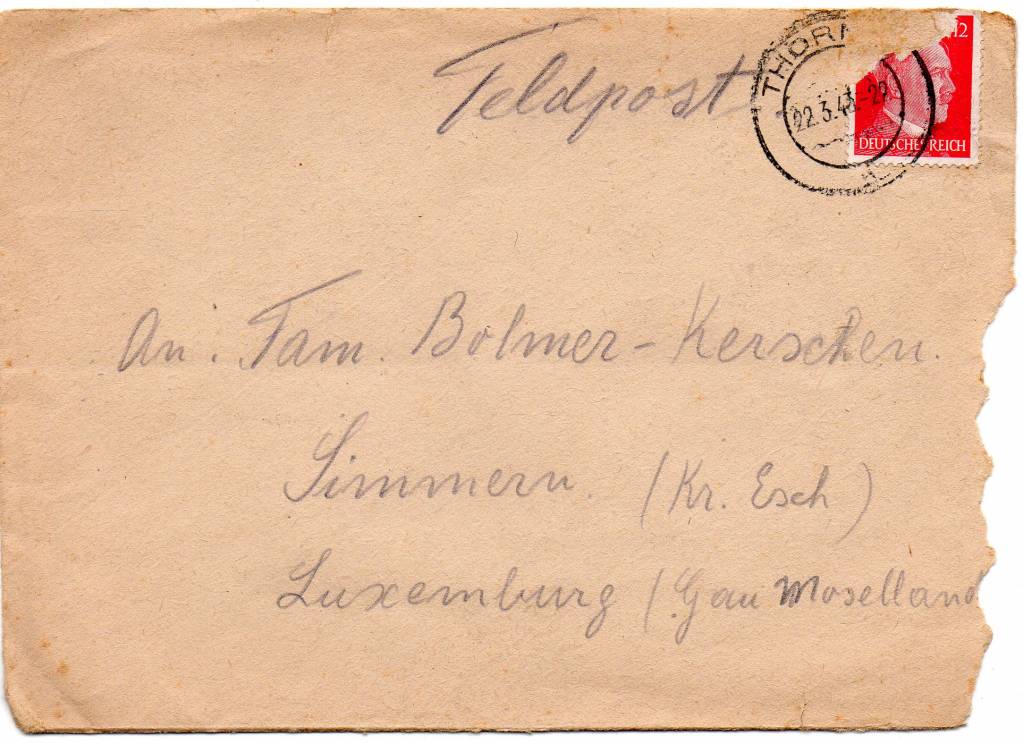 Feldpost
THORN
12
22.3.43.-22
DEUTSCHES REICH
An. Fam. Bolmer-Kerschen.
Simmern. (Kr. Esch)
Luxemburg (Gau Moselland